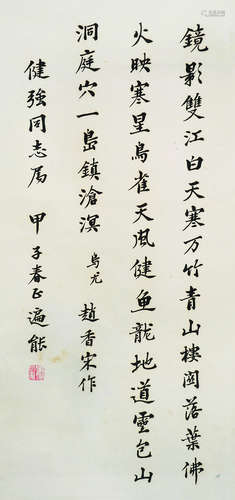 鏡影雙江白天寒万竹青山樓闳落葉佛
火映寒星鳥雀天風健鱼龍地道靈包山
洞庭穴一島鎮滄溟 烏尤 趙香宋作
健強同志属 甲子春正遍能